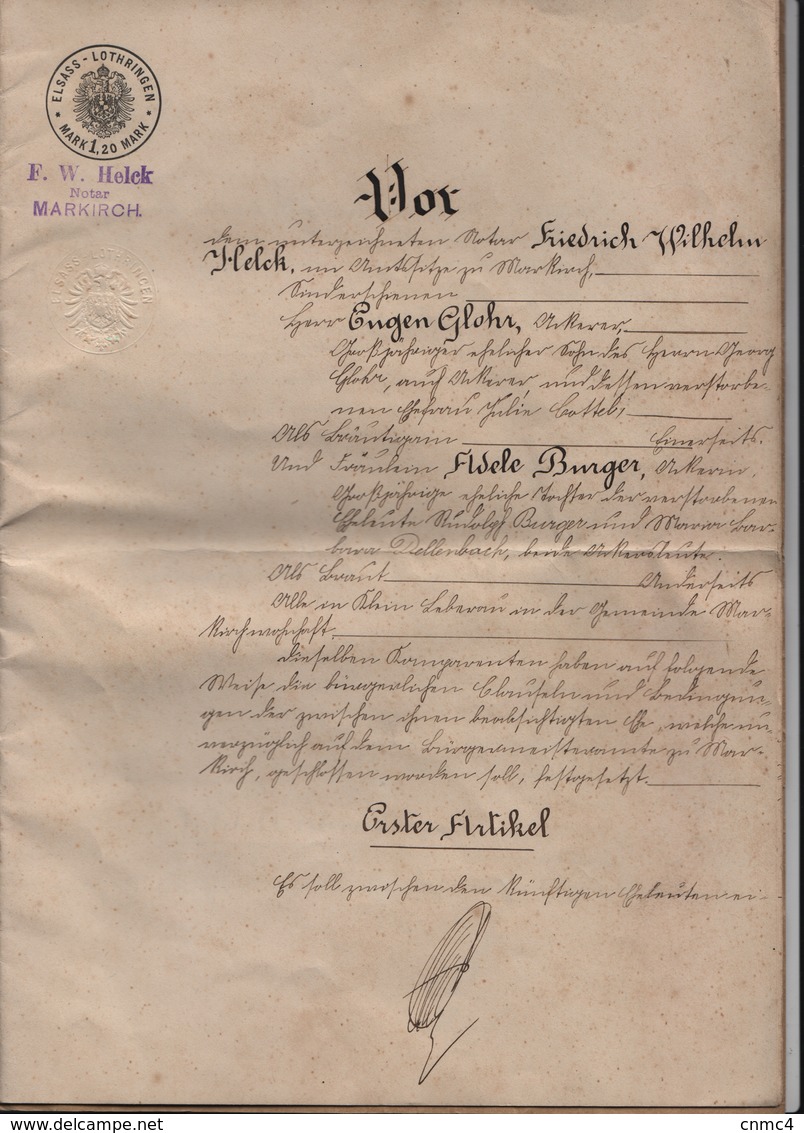 ELSASS-LOTHRINGEN
* MARK 1,20 MARK *
F. W. Helck
Notar
MARKIRCH.
ELSASS-LOTHRINGEN
Vor
dem unterzeichneten Notar Friedrich Wilhelm
Helck, im Amtssitze zu Markirch,
Sind erschienen
Herr Eugen Glohr, Ackerer,
Großjähriger ehelicher Sohn des Herrn Georg
Glohr, auch Ackerer, und dessen verstorbe-
nen Ehefrau Julie Cottel,
Als Bräutigam Einerseits.
Und Fräulein Adele Burger, Ackerin,
Großjährige eheliche Tochter der verstorbenen
Eheleute Rudolph Burger und Maria Bar-
bara Dellenbach, beide Ackersleute.
Als Braut Anderseits
Alle in Klein Leberau in der Gemeinde Mar-
kirch wohnhaft.
Dieselben Komparenten haben auf folgende
Weise die bürgerlichen Clauseln und Bedingun-
gen der zwischen ihnen beabsichtigten Ehe, welche un-
verzüglich auf dem Bürgermeisteramte zu Mar-
kirch, geschlossen worden soll, festgesetzt.
Erster Artikel
Es soll zwischen den künftigen Eheleuten ei-
www.delcampe.net
cnmc4